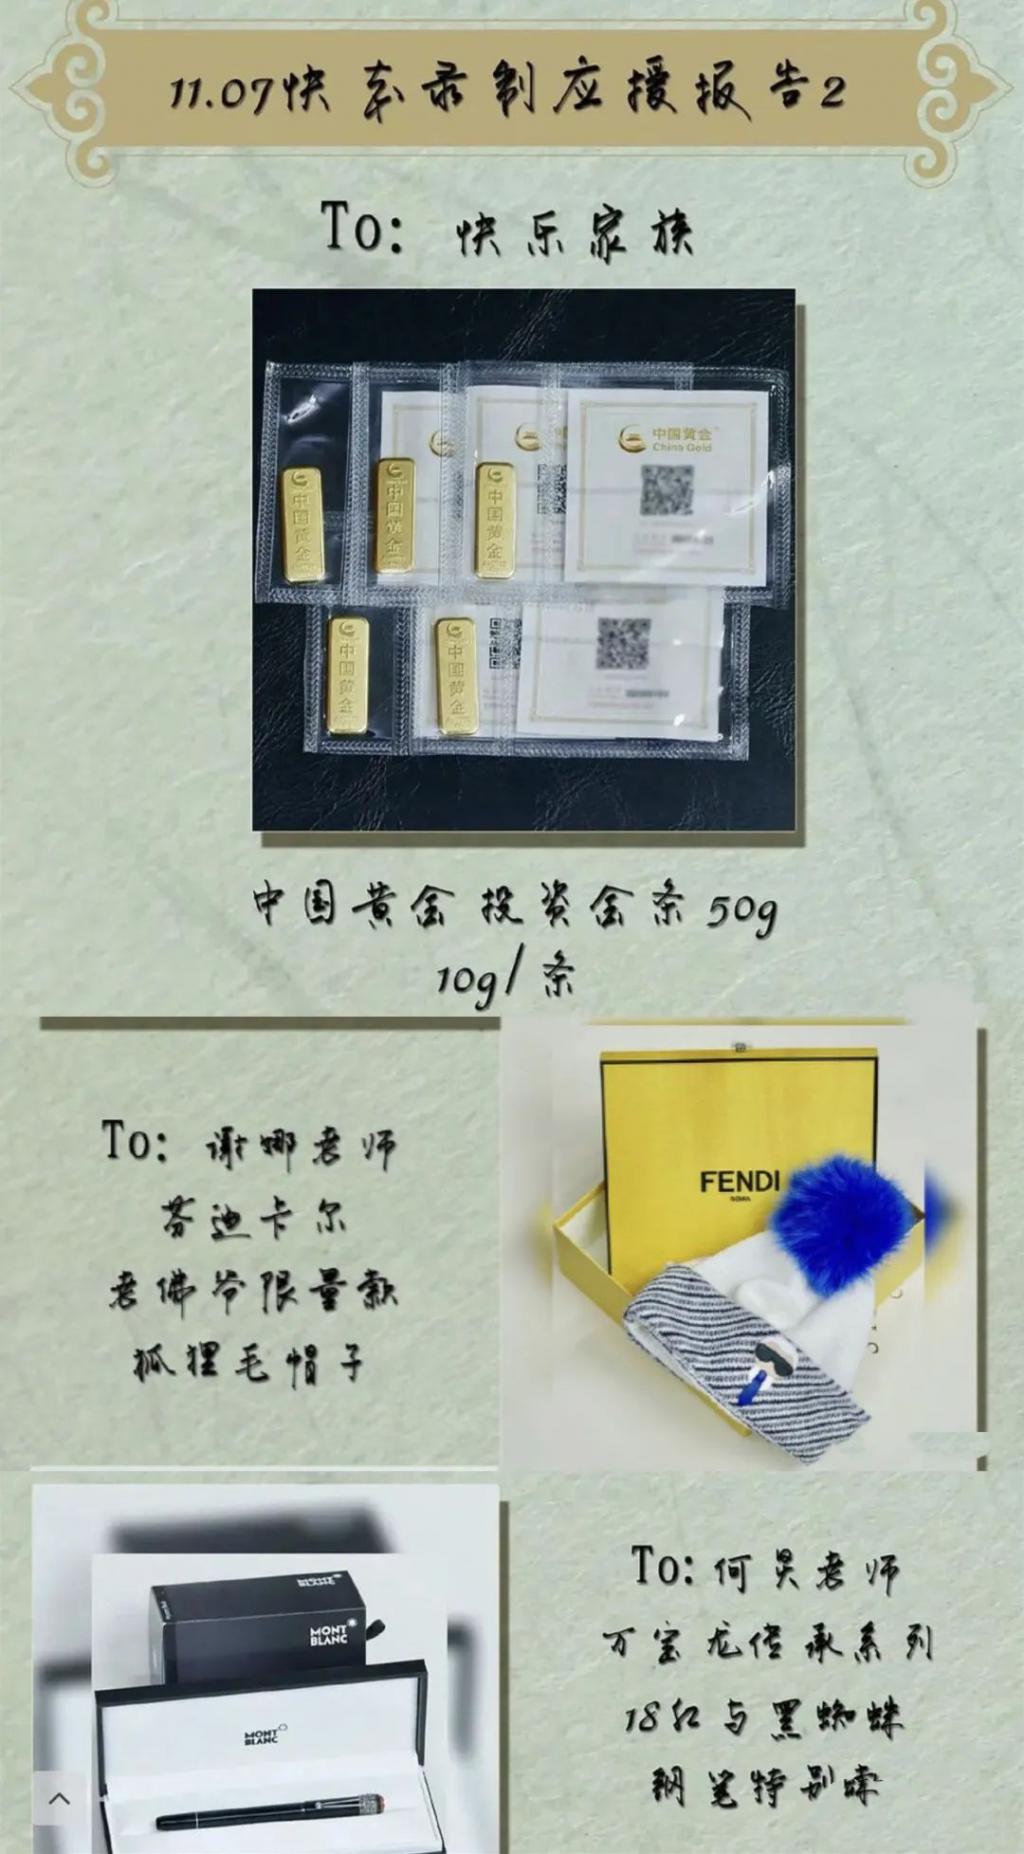 11.07快本录制应援报告2
To: 快乐家族
中国黄金
China Gold
中国黄金
中国黄金
中国黄金
中国黄金
中国黄金
中国黄金 投资金条 50g
10g/条
To: 谢娜老师
芬迪卡尔
老佛爷限量款
狐狸毛帽子
FENDI
ROMA
MONT
BLANC
MONT
BLANC
MONT
BLANC
To: 何炅老师
万宝龙传承系列
18红与黑蜘蛛
钢笔特别款